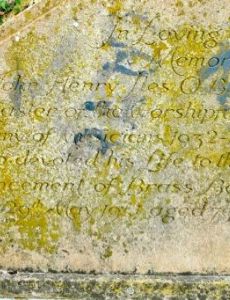 In Loving
Memor
Henry Iles O.B.
aster of the Worshipf
ny of Musicians 1932-
devoted his Life to th
ncement of Brass Ba
May aged 7